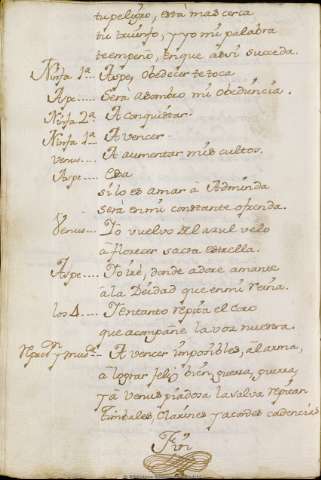 tu peligro, està mas cerca
tu triunfo, y yo mi palabra
te empeño, en que assi suceda.
Ninfa 1ª Aspe, obedecer te toca.
Aspe..... Será asombro mi obediencia.
Ninfa 2ª A conquistar.
Ninfa 1ª A vencer.
Venus.... A aumentar mis cultos.
Aspe.... Essa
si lo es amar à Adminda
será en mi constante ofrenda.
Venus... Yo vuelvo al azul velo
à florecer sacra estrella.
Aspe.... Yo iré, donde adore amante
à la Deidad que en mi reina.
los 4.... Y en tanto repita el Eco
que acompañe la voz nuestra.
A vencer imposibles, al arma,
à lograr feliz bien, guerra, guerra,
y à Venus piadosa la salva repitan
timbales, clarines y acordes cadencias
Fin